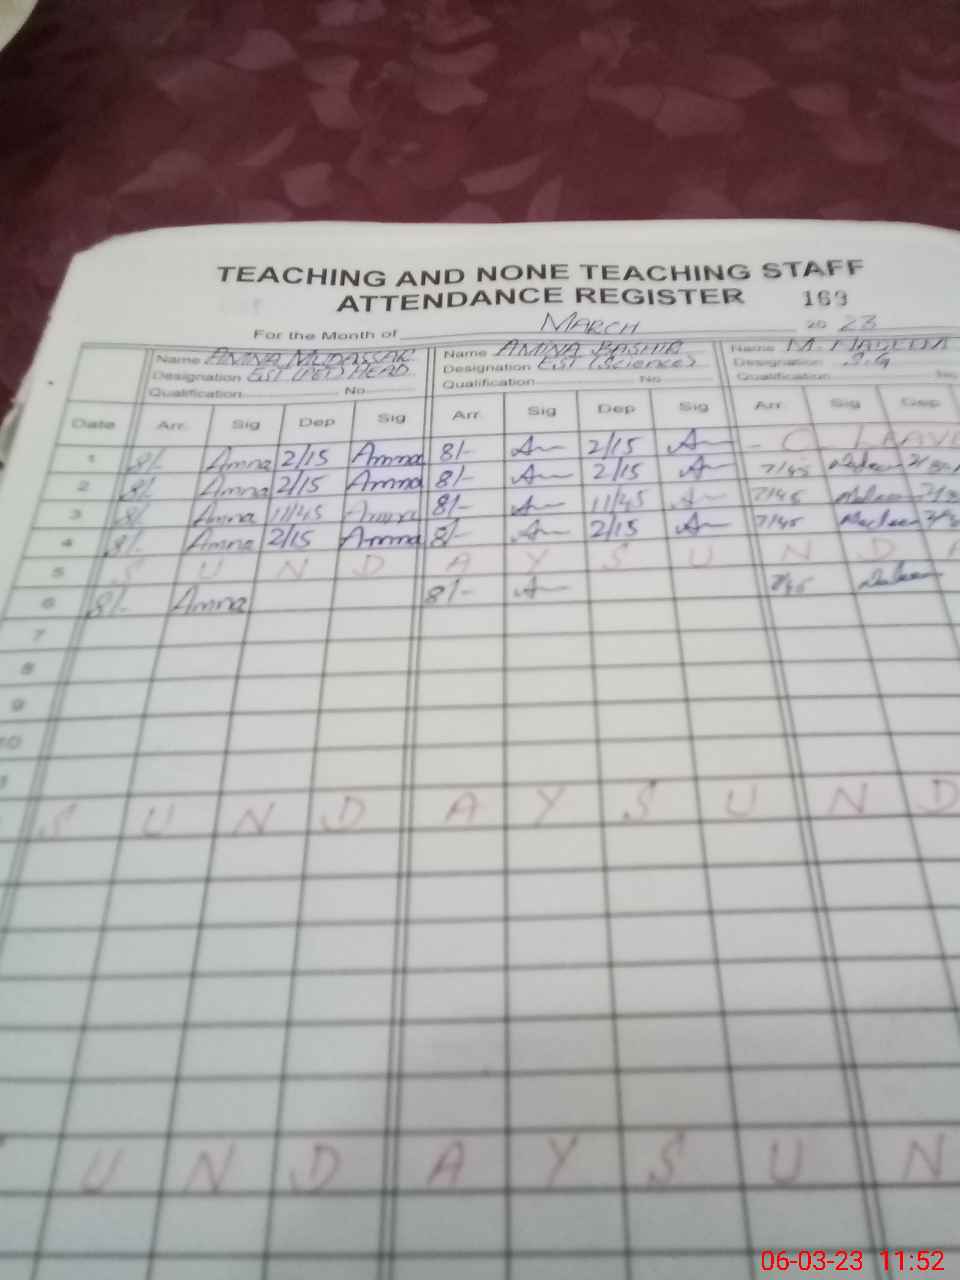 TEACHING AND NONE TEACHING STAFF
ATTENDANCE REGISTER 169
For the Month of MARCH 20 23
Name AMNA MUDASSAR Name AMINA BASHIR Name M.
Designation EST (PET) HEAD Designation EST (Science) Designation S.G
Qualification No Qualification No Qualification No
Date Arr. Sig Dep Sig Arr. Sig Dep Sig Arr. Sig Dep
1 8/- Amna 2/15 Amna 8/- A 2/15 A - C LEAVE
2 8/- Amna 2/15 Amna 8/- A 2/15 A 7/45
3 8/- Amna 11/45 Amna 8/- A 11/45 A 7/45
4 8/- Amna 2/15 Amna 8/- A 2/15 A 7/45
5 S U N D A Y S U N D A
6 8/- Amna 8/- A 7/45
7
8
9
10
S U N D A Y S U N D
U N D A Y S U N
06-03-23 11:52